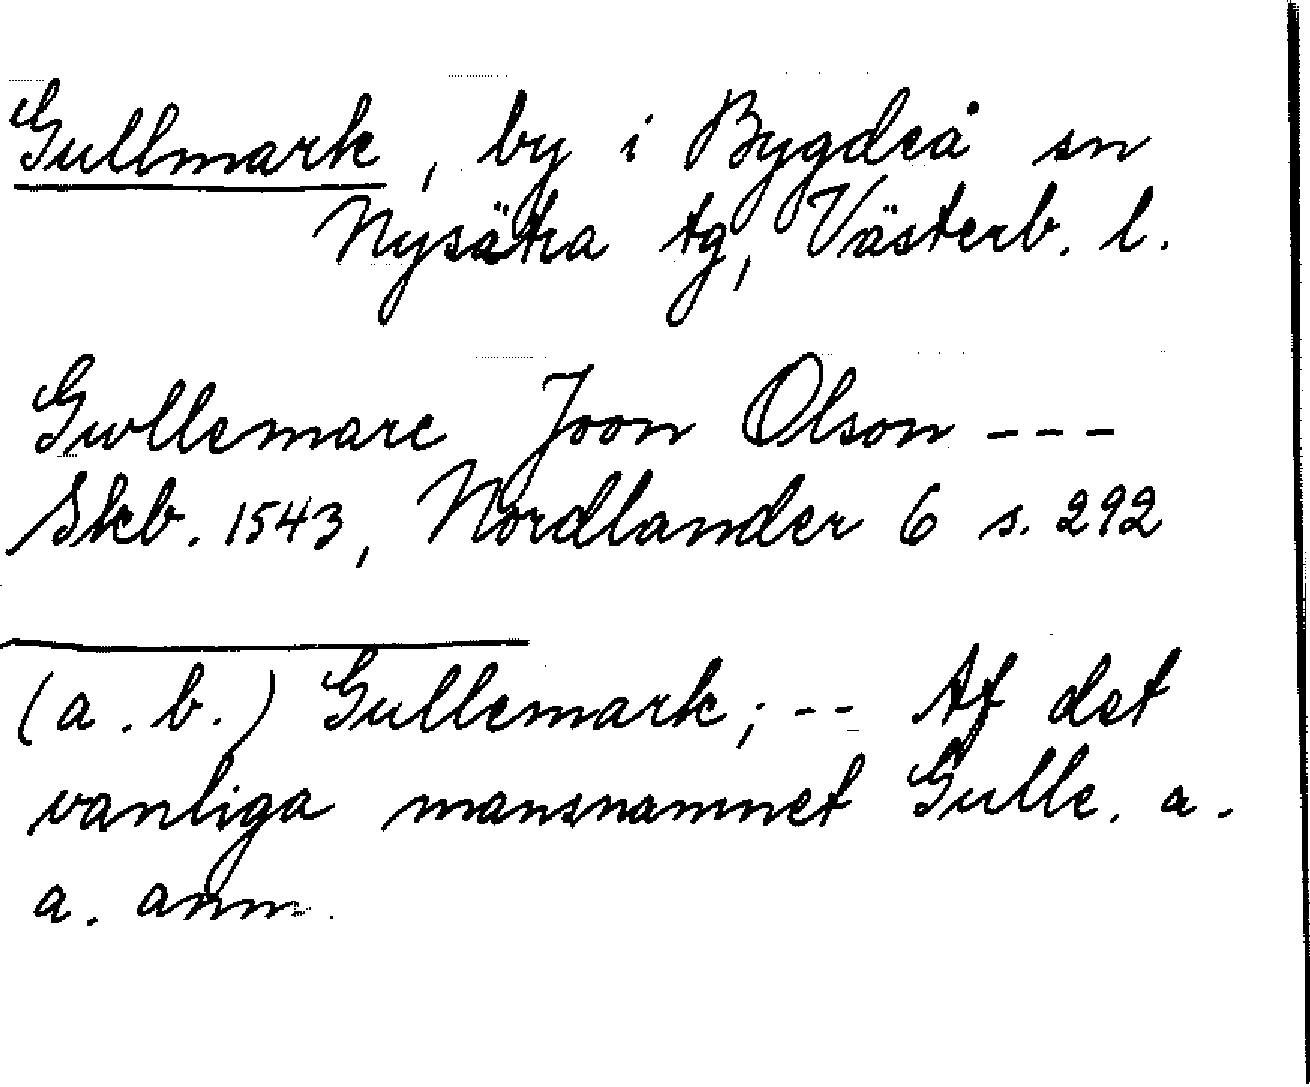 Gullmark, by i Bygdeå sn
Nysätra tg, Västerb. l.
Gwllemarc Joon Olson ---
Skb. 1543, Nordlander 6 s. 292
(a. b.) Gullemark; -- Af det
vanliga mansnamnet Gulle. a.
a. anm.